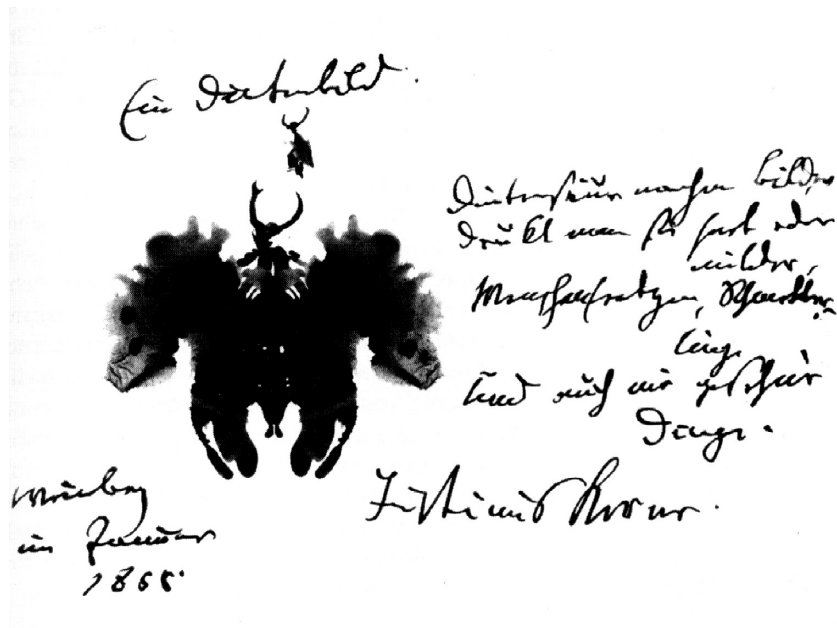 Ein Dintenbild.
Dintensäue machen Bilder
Drükt man sie hart oder
milder,
Menschenfratzen, Schmetter-
linge
Und auch nie
Dinge.
Justinus Kerner.
Weinsberg
im Januar
1855.